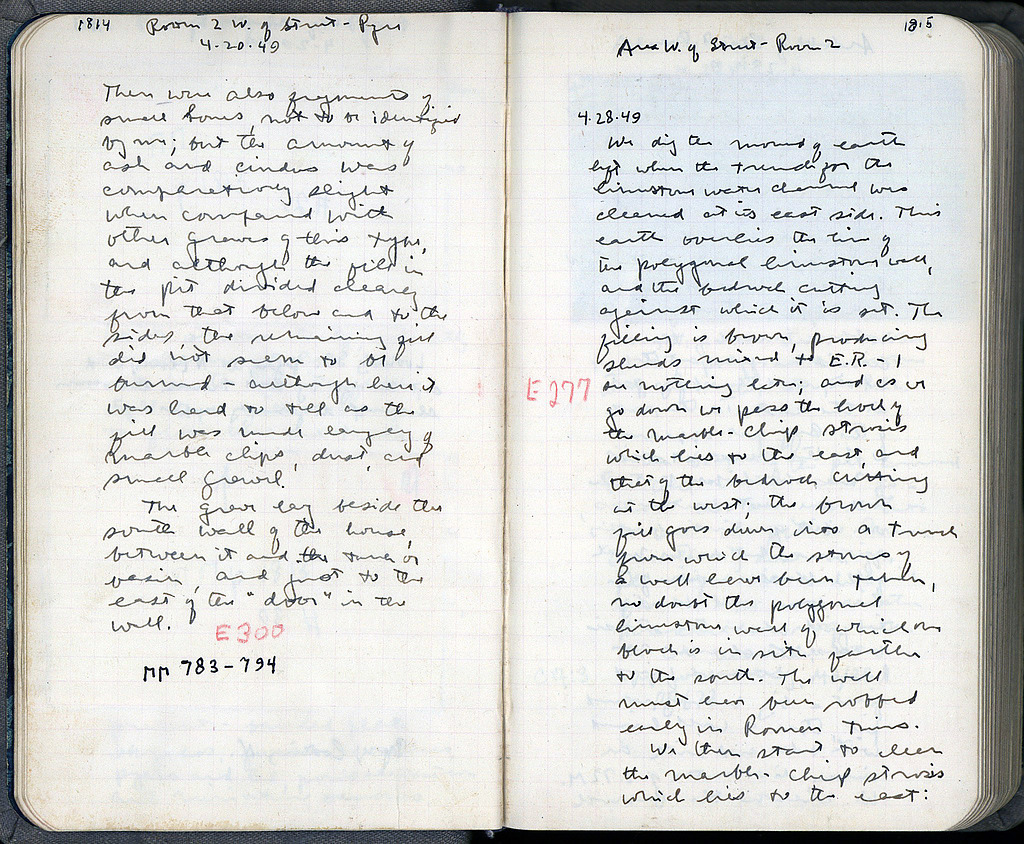 1814
Room 2 W. of Street - Pyre
4.20.49
There were also fragments of
small bones, not to be identified
by me; but the amount of
ash and cinders was
comparatively slight
when compared with
other graves of this type,
and although the fill in
the pit divided clearly
from that below and to the
sides, the remaining fill
did not seem to be
burned - although here it
was hard to tell as the
fill was made largely of
marble chips, dust, and
small gravel.
The grave lay beside the
south wall of the house,
between it and the tank or
basin, and just to the
east of the "door" in the
wall.
E300
ΠΠ 783-794
1815
Area W. of Street - Room 2
4.28.49
We dig the mound of earth
left when the trench for the
limestone water channel was
cleaned at its east side. This
earth overlies the line of
the polygonal limestone wall,
and the bedrock cutting
against which it is set. The
filling is brown, producing
sherds mixed to E.R. - 1
E277
or nothing later; and as we
go down we pass the level of
the marble-chip strosis
which lies to the east, and
that of the bedrock cutting
at the west; the brown
fill goes down into a trench
from which the stones of
a wall have been taken,
no doubt the polygonal
limestone wall of which one
block is in situ farther
to the south. The wall
must have been robbed
early in Roman times.
We then start to clean
the marble-chip strosis
which lies to the east: